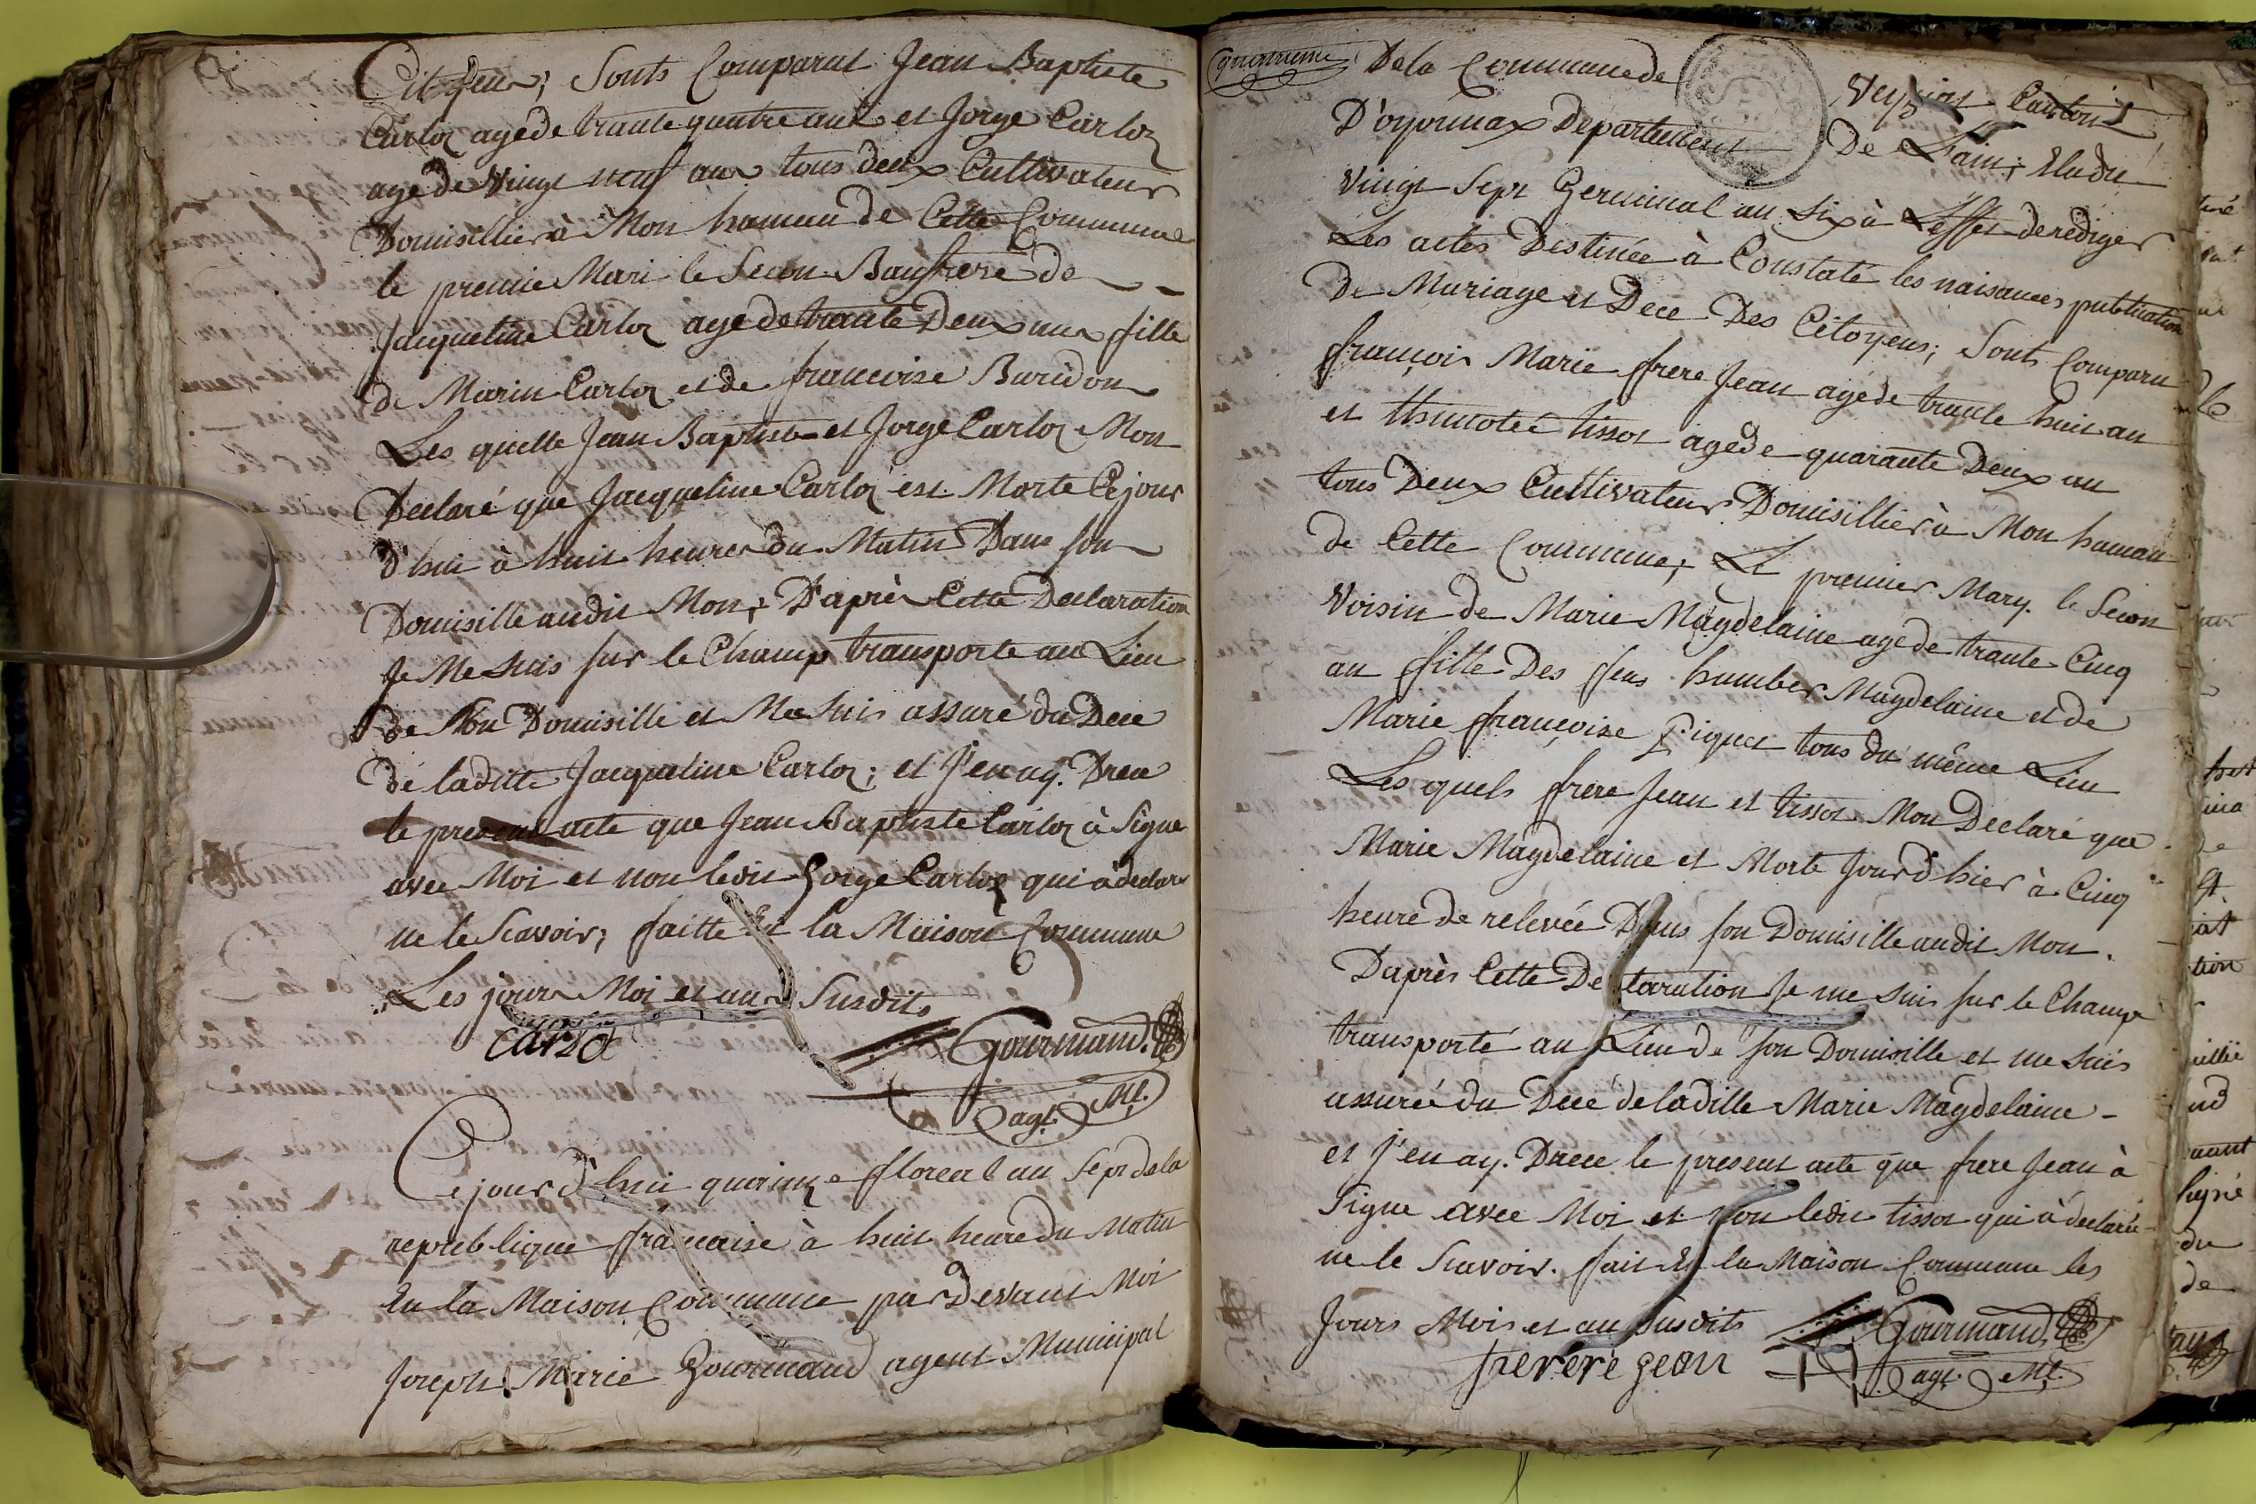 Citoyens; Sonts Comparut Jean Baptiste
Carloz agé de trante quatre ans et Jorge Carloz
agé de Vingt neuf ans tous deux Cultivateurs
Domisillier à Mon hameau de Cette Commune
le premie Mari le Secon Baufrere de
Jacqueline Carloz agé de trante Deux ans fille
de Marin Carloz et de francoise Buridon
Les quelle Jean Baptiste et Jorge Carloz Mon
Declaré que Jacqueline Carloz est Morte Cejour
d'hui à huit heures du Matin Dans son
Domisille audit Mon; D'après Cette Declaration
Je Me suis sur le Champ transporte au Lieu
de Son Domisille et Me suis assuré du Dece
de laditte Jacqueline Carloz; et J'en ay. Drece
le present acte que Jean Baptiste Carloz à Signe
avec Moi et non ledit Gorge Carloz qui à declare
ne le Scavoir; faitte En la Maison Commune
Les jours Moi et an Susdits
carloz Gourmand.
agt. Ml.
Ce jour d'hui quainze floreal an Sept de la
republique francaise à huit heure du Matin
En la Maison Commune par Devant Moi
Joseph Marie Gourmand agent Municipal
quatrieme De la Commune de Veyziat Canton
D'oyonnax Departement De Lain; Eludit
Vingt Sept Germinal an Six à L'effet de rediger
Les actes Destinée à Constaté les naisances publication
De Mariage et Dece Des Citoyens; Sonts Comparu
françois Marie frere Jean agé de trante huit an
et thimotée tissot agé de quarante Deux an
tous Deux Cultivateurs Domisillier à Mon hamau
de Cette Commune; Le premier Mary. le Secon
Voisin de Marie Magdelaine agé de trante Cinq
an fille Des feus humber Magdelaine et de
Marie françoise Piquet tous du même Lieu
Les quels frere Jean et tissot Mon Déclaré que
Marie Magdelaine et Morte Jourd'hier à Cinq
heure de relevée Dans son Domisille audit Mon.
D'après Cette Declaration Je me suis sur le Champ
transporté au Lieu de son Domisille et me suis
assurée du Decé de laditte Marie Magdelaine
et J'en ay. Drece le present acte que frere Jean à
Signe avec Moi et non ledit tissot qui à declarée
ne le Scavoir. fait En la Maison Commune les
Jours Mois et an Susdits Gourmand.
frerere gean agt. Ml.